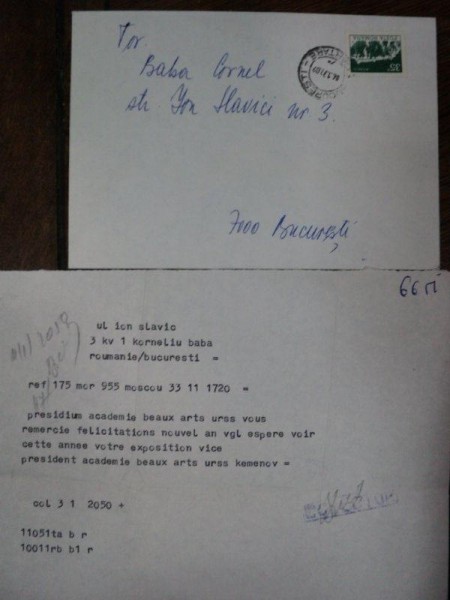 Tov.
Baba Cornel
str. Ion Slavici nr 3.
7000 București
ul ion slavic
3 kv 1 korneliu baba
roumanie/bucuresti =
ref 175 mor 955 moscou 33 11 1720 =
presidium academie beaux arts urss vous
remercie felicitations nouvel an vgl espere voir
cette annee votre exposition vice
president academie beaux arts urss kemenov =
col 3 1 2050 +
11051ta b r
10011rb b1 r